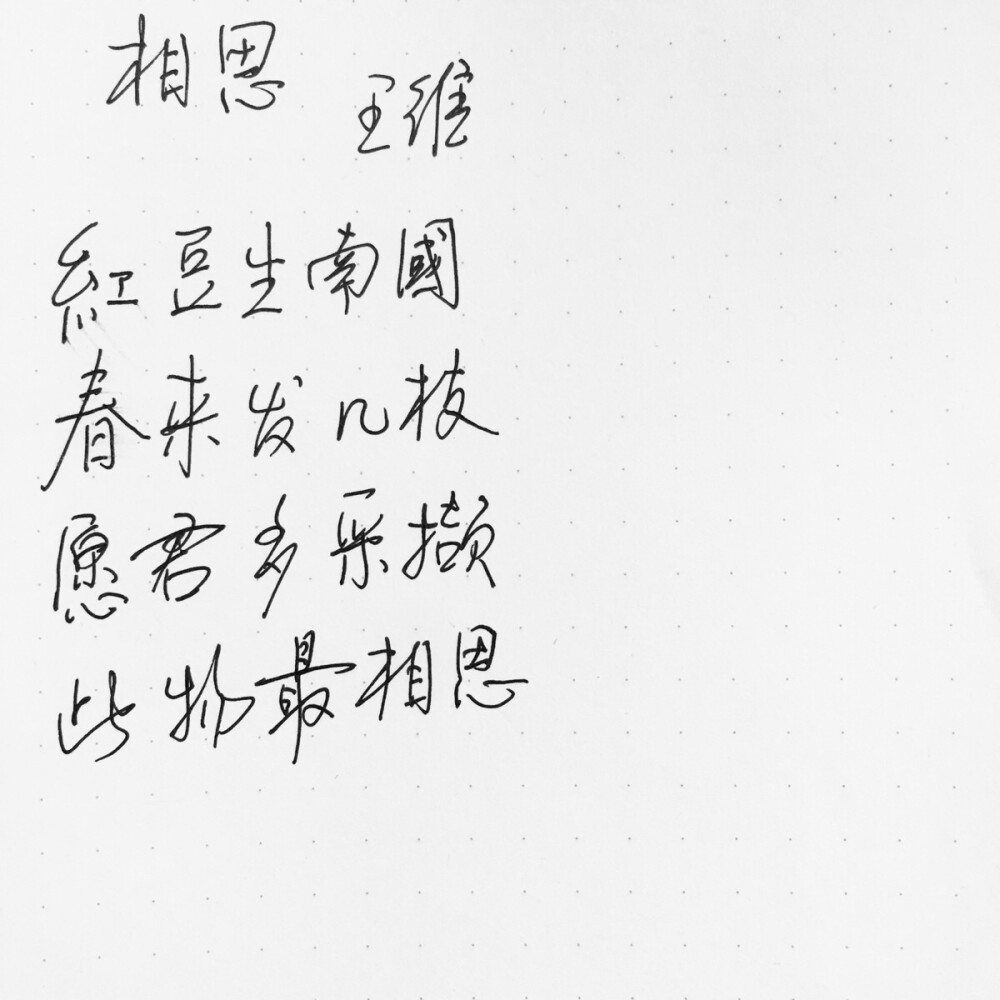 相思
王维
紅豆生南國
春来发几枝
愿君多采撷
此物最相思